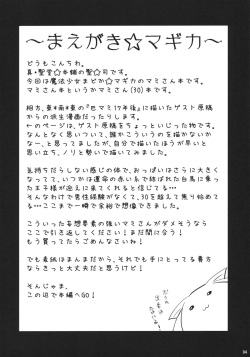 ～まえがき☆マギカ～
どうもこんちわ。
真・聖堂☆本舗の聖☆司です。
今回は魔法少女まどか☆マギカのマミさん本です。
マミさん本というかマミさん(30)本です。
相方、東☆南☆東の『巴マミ17年後』に描いたゲスト原稿
からの派生漫画だったりします。
←のページは、ゲスト原稿をちょっといじった物です。
なんとなく思いついて、誰かこういうのを描かないか
なー、と思ってましたが、自分で描いたほうが早いと
思い立ち、ノリと勢いで描いてみました。
気持ちだらしない感じの体で、おっぱいはさらに大きく
なってて、いつかは運命の赤い糸で結ばれた白馬に乗っ
た王子様が迎えに来てくれると信じてる…
そんなわけで男性経験がなくて、30を超えて焦り始めて
る…ここまで一瞬で余裕で想像できました。
こういった妄想要素の強いマミさんがダメそうなら
ここで引き返してください！まだ間に合う！
もう買ってたらごめんなさいね！
でも表紙はまんまだから、それでも手にとってる貴方
ならきっと大丈夫だと思うけど！
そんじゃま、
この辺で本編へGO！